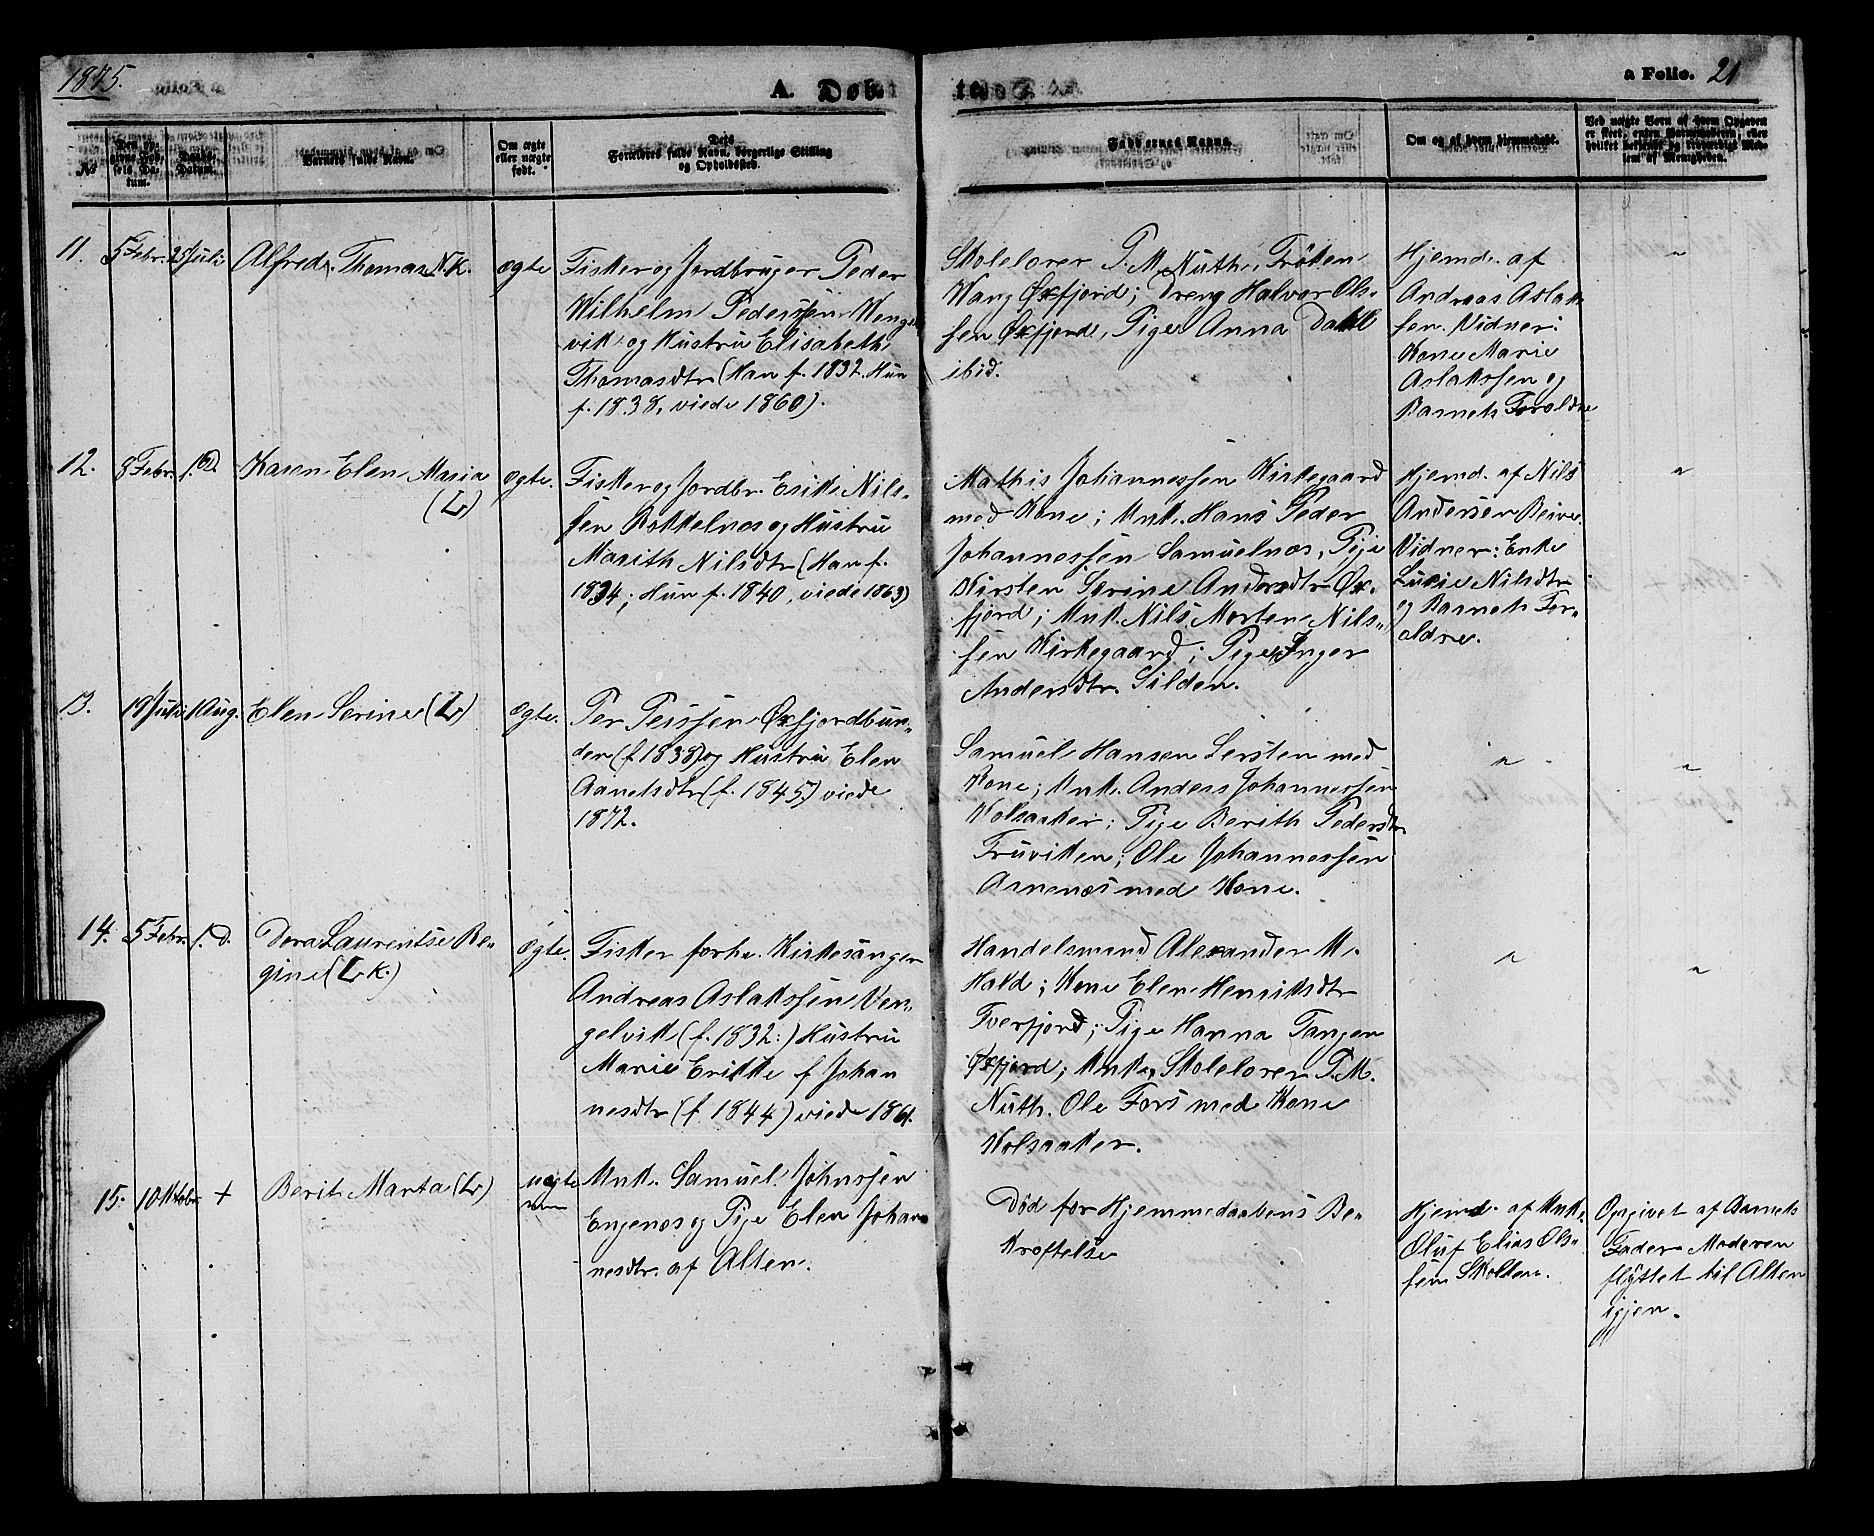 1875.
A. Døb-
te.
a Folio. 21
No
Den op-
givne Fød-
sels Da-
tum.
Daabs-
Datum.
Barnets fulde Navn.
Om ægte
eller uægte
født.
Dets
Forældres fulde Navn, borgerlige Stilling
og Opholdssted.
Faddernes Navne.
Om og af hvem hjemmedøbt.
Ved uægte Børn af hvem Opgaven
er skeet, enten Barnefaderen, eller
hvilket bekjendt og troværdigt Med-
lem af Menigheden.
11. 5 Febr. 25 Juli Alfred Thomas N.K. ægte
Fisker og Jordbruger Peder
Wilhelm Pederssen Wenge
vik og Hustru Elisabeth
Thomasdtr (Han f. 1832. Hun
f. 1838, viede 1860).
Skolelærer P. M. Nuth, Frøken
Wang Øxfjord; Dreng Halvor Ols-
sen Øxfjord, Pige Anna Dahl
ibid.
Hjemd. af
Andreas Aslak-
sen. Vidner:
Kone Marie
Aslakssen og
Barnets Forældre
"
12. 8 Febr. s. D. Karen Elen Maria
(L)
ægte.
Fisker og Jordbr. Erik Nils-
sen Bokkelnes og Hustru
Marith Nilsdtr (Han f.
1834; Hun f. 1840, viede 1863)
Mathis Johannessen Kirkegaard
med Kone; Unk. Hans Peder
Johannessen Samuelnæs, Pige
Kirsten Serine Andersdtr Øx-
fjord; Unk. Nils Morten Nils-
sen Kirkegaard; Pige Inger
Andersdtr. Silden.
Hjemd. af Nils
Andersen
Vidner: Enke
Lucie Nilsdtr
og Barnets For-
ældre.
"
13. 19 Juli 1 Aug. Elen Serine (L) ægte.
Per Peissen Øxfjordbun-
den (f. 1838) og Hustru Elen
Aanetsdtr (f. 1845) viede
1872.
Samuel Hansen Lersten med
Kone; Unk. Anders Johannessen
Kolsaaker; Pige Berith Pedersdtr
Truviken; Ole Johannessen
Arnenæs med Kone.
"
"
14. 5 Febr. s. D. Dora Laurentse Re-
gine (L.K.)
ægte.
Fisker forhv. Kirkesanger
Andreas Aslakssen Ven-
gelvik (f. 1832:) Hustru
Marie Erikke f Johan
nesdtr (f. 1844) viede 1861.
Handelsmand Alexander M.
Hald; Kone Elen Henriksdtr
Tverfjord; Pige Hanna Tangen
Øxfjord; Unk. Skolelærer P. M.
Nuth. Ole Fors med Kone
Kolsaaker.
"
"
15. 1 Oktobr + Berit Marta (L) uægte
Unk. Samuel Johnssen
Engenæs og Pige Elen Johan
nesdtr. af Alten.
Død før Hjemmedaabens Be-
kræftelse
Hjemd. af Unk.
Oluf Elias Ols-
sen Skolten.
Opgivet af Barnets
Fader Moderen
flyttet til Alten
igjen.